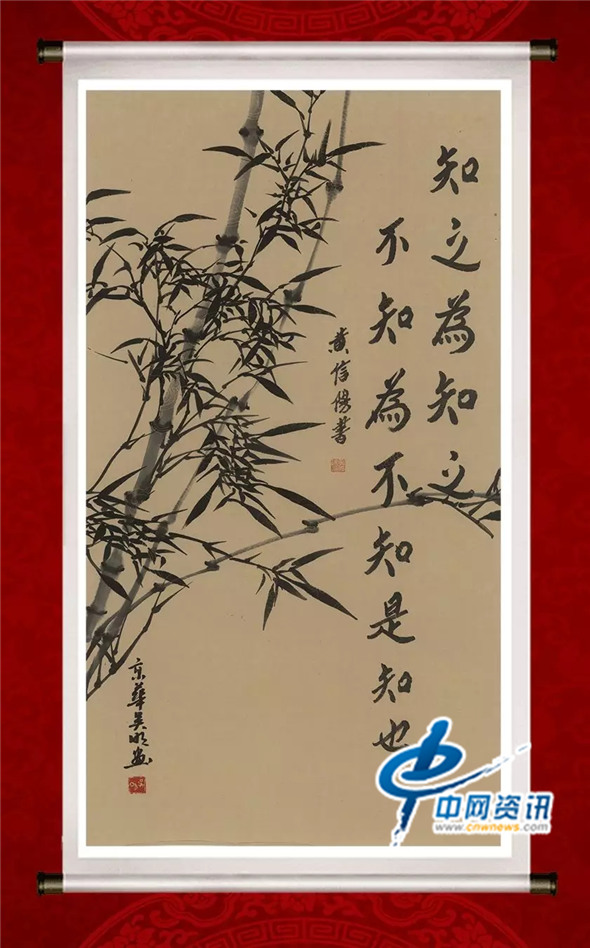 知之為知之
不知為不知是知也
黄信陽書
京華吳明畫
中网资讯
www.cnwnews.com